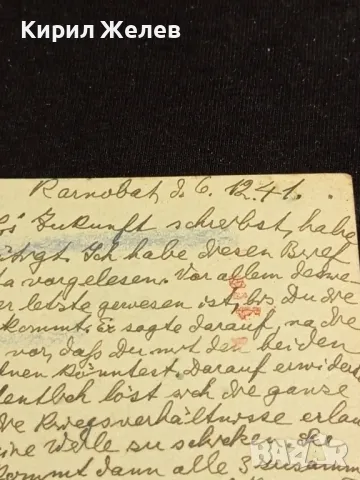 Кирил Желев
Karnobat, d. 6. 12. 41.
Zukunft schreibst, habe
Ich habe diesen Brief
vorgelesen. Vor allem
er letzte gewesen ist, bis Du die
kommt. Er sagte darauf, na die
vor, daß Du mit den beiden
könntest. Darauf erwidert
löst sich die ganze
die Kriegsverhältnisse erlau
eine Welle zu schicken. Ihr
kommt dann alle 3 zusamm
bazar